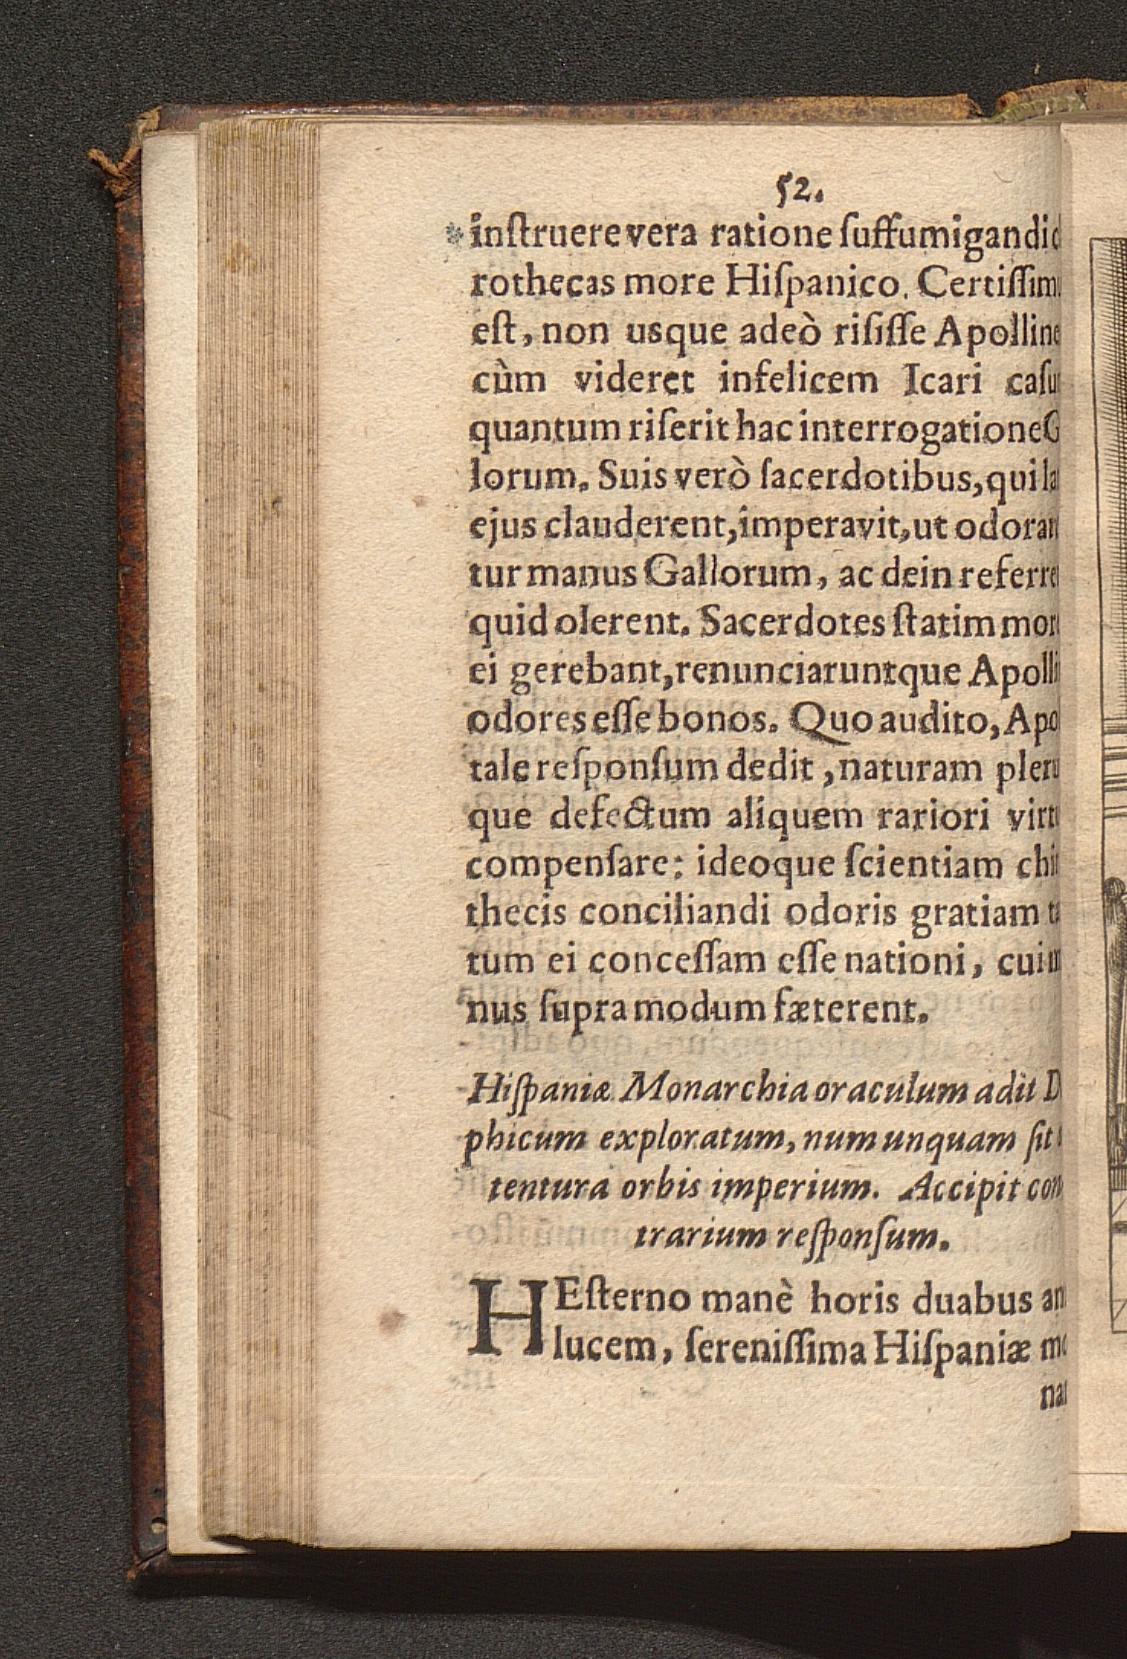 52.
inſtruere vera ratione ſuffumigandi
rothecas more Hiſpanico. Certiſſim
eſt, non usque adeò riſiſſe Apolline
cùm videret infelicem Icari caſu
quantum riſerit hac interrogatione G
lorum. Suis verò ſacerdotibus, qui la
ejus clauderent, imperavit, ut odoran
tur manus Gallorum, ac dein referre
quid olerent. Sacerdotes ſtatim mor
ei gerebant, renunciaruntque Apolli
odores eſſe bonos. Quo audito, Apo
tale reſponſum dedit, naturam pleru
que defectum aliquem rariori virtu
compenſare: ideoque ſcientiam chi
thecis conciliandi odoris gratiam
tum ei conceſſam eſſe nationi, cui
nus ſupra modum fæterent.
Hiſpaniæ Monarchia oraculum adit D
phicum exploratum, num unquam ſit
tentura orbis imperium. Accipit con
trarium reſponſum.
HEſterno manè horis duabus an
lucem, ſereniſſima Hiſpaniæ mo
nar